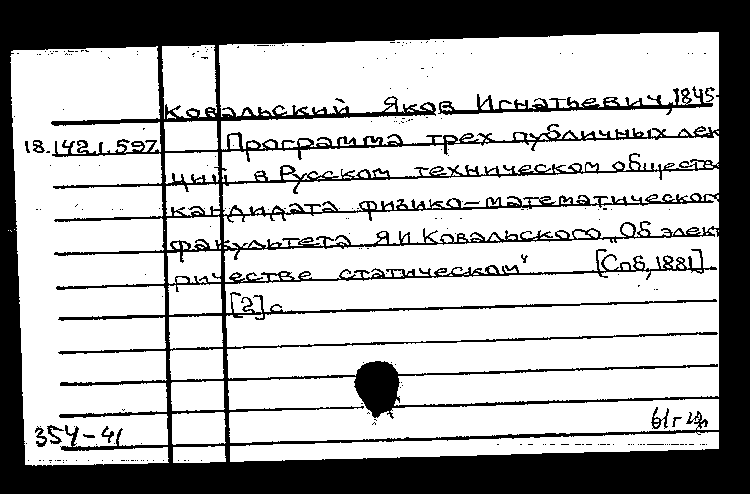 Ковальский Яков Игнатьевич, 1845-
18.142.1.597 Программа трех публичных лек
ций в Русском техническом обществе
кандидата физико-математического
факультета Я.И Ковальского „Об элект
ричестве статическом“ [Спб, 1881]
[2] с
354-41
61г